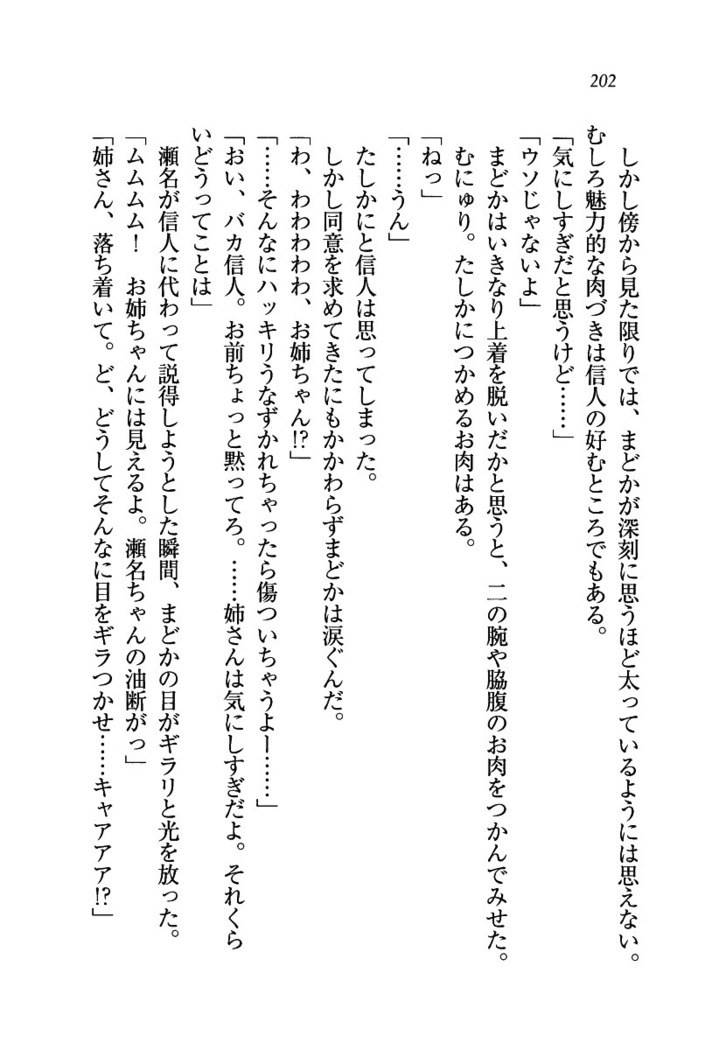 202
しかし傍から見た限りでは、まどかが深刻に思うほど太っているようには思えない。
むしろ魅力的な肉づきは信人の好むところでもある。
「気にしすぎだと思うけど……」
「ウソじゃないよ」
まどかはいきなり上着を脱いだかと思うと、二の腕や脇腹のお肉をつかんでみせた。
むにゅり。たしかにつかめるお肉はある。
「ねっ」
「……うん」
たしかにと信人は思ってしまった。
しかし同意を求めてきたにもかかわらずまどかは涙ぐんだ。
「わ、わわわわわ、お姉ちゃん!?」
「……そんなにハッキリうなずかれちゃったら傷ついちゃうよー……」
「おい、バカ信人。お前ちょっと黙ってろ。……姉さんは気にしすぎだよ。それくら
いどうってことは」
瀬名が信人に代わって説得しようとした瞬間、まどかの目がギラリと光を放った。
「ムムムム！　お姉ちゃんには見えるよ。瀬名ちゃんの油断がっ」
「姉さん、落ち着いて。ど、どうしてそんなに目をギラつかせ……キャアアア!?」